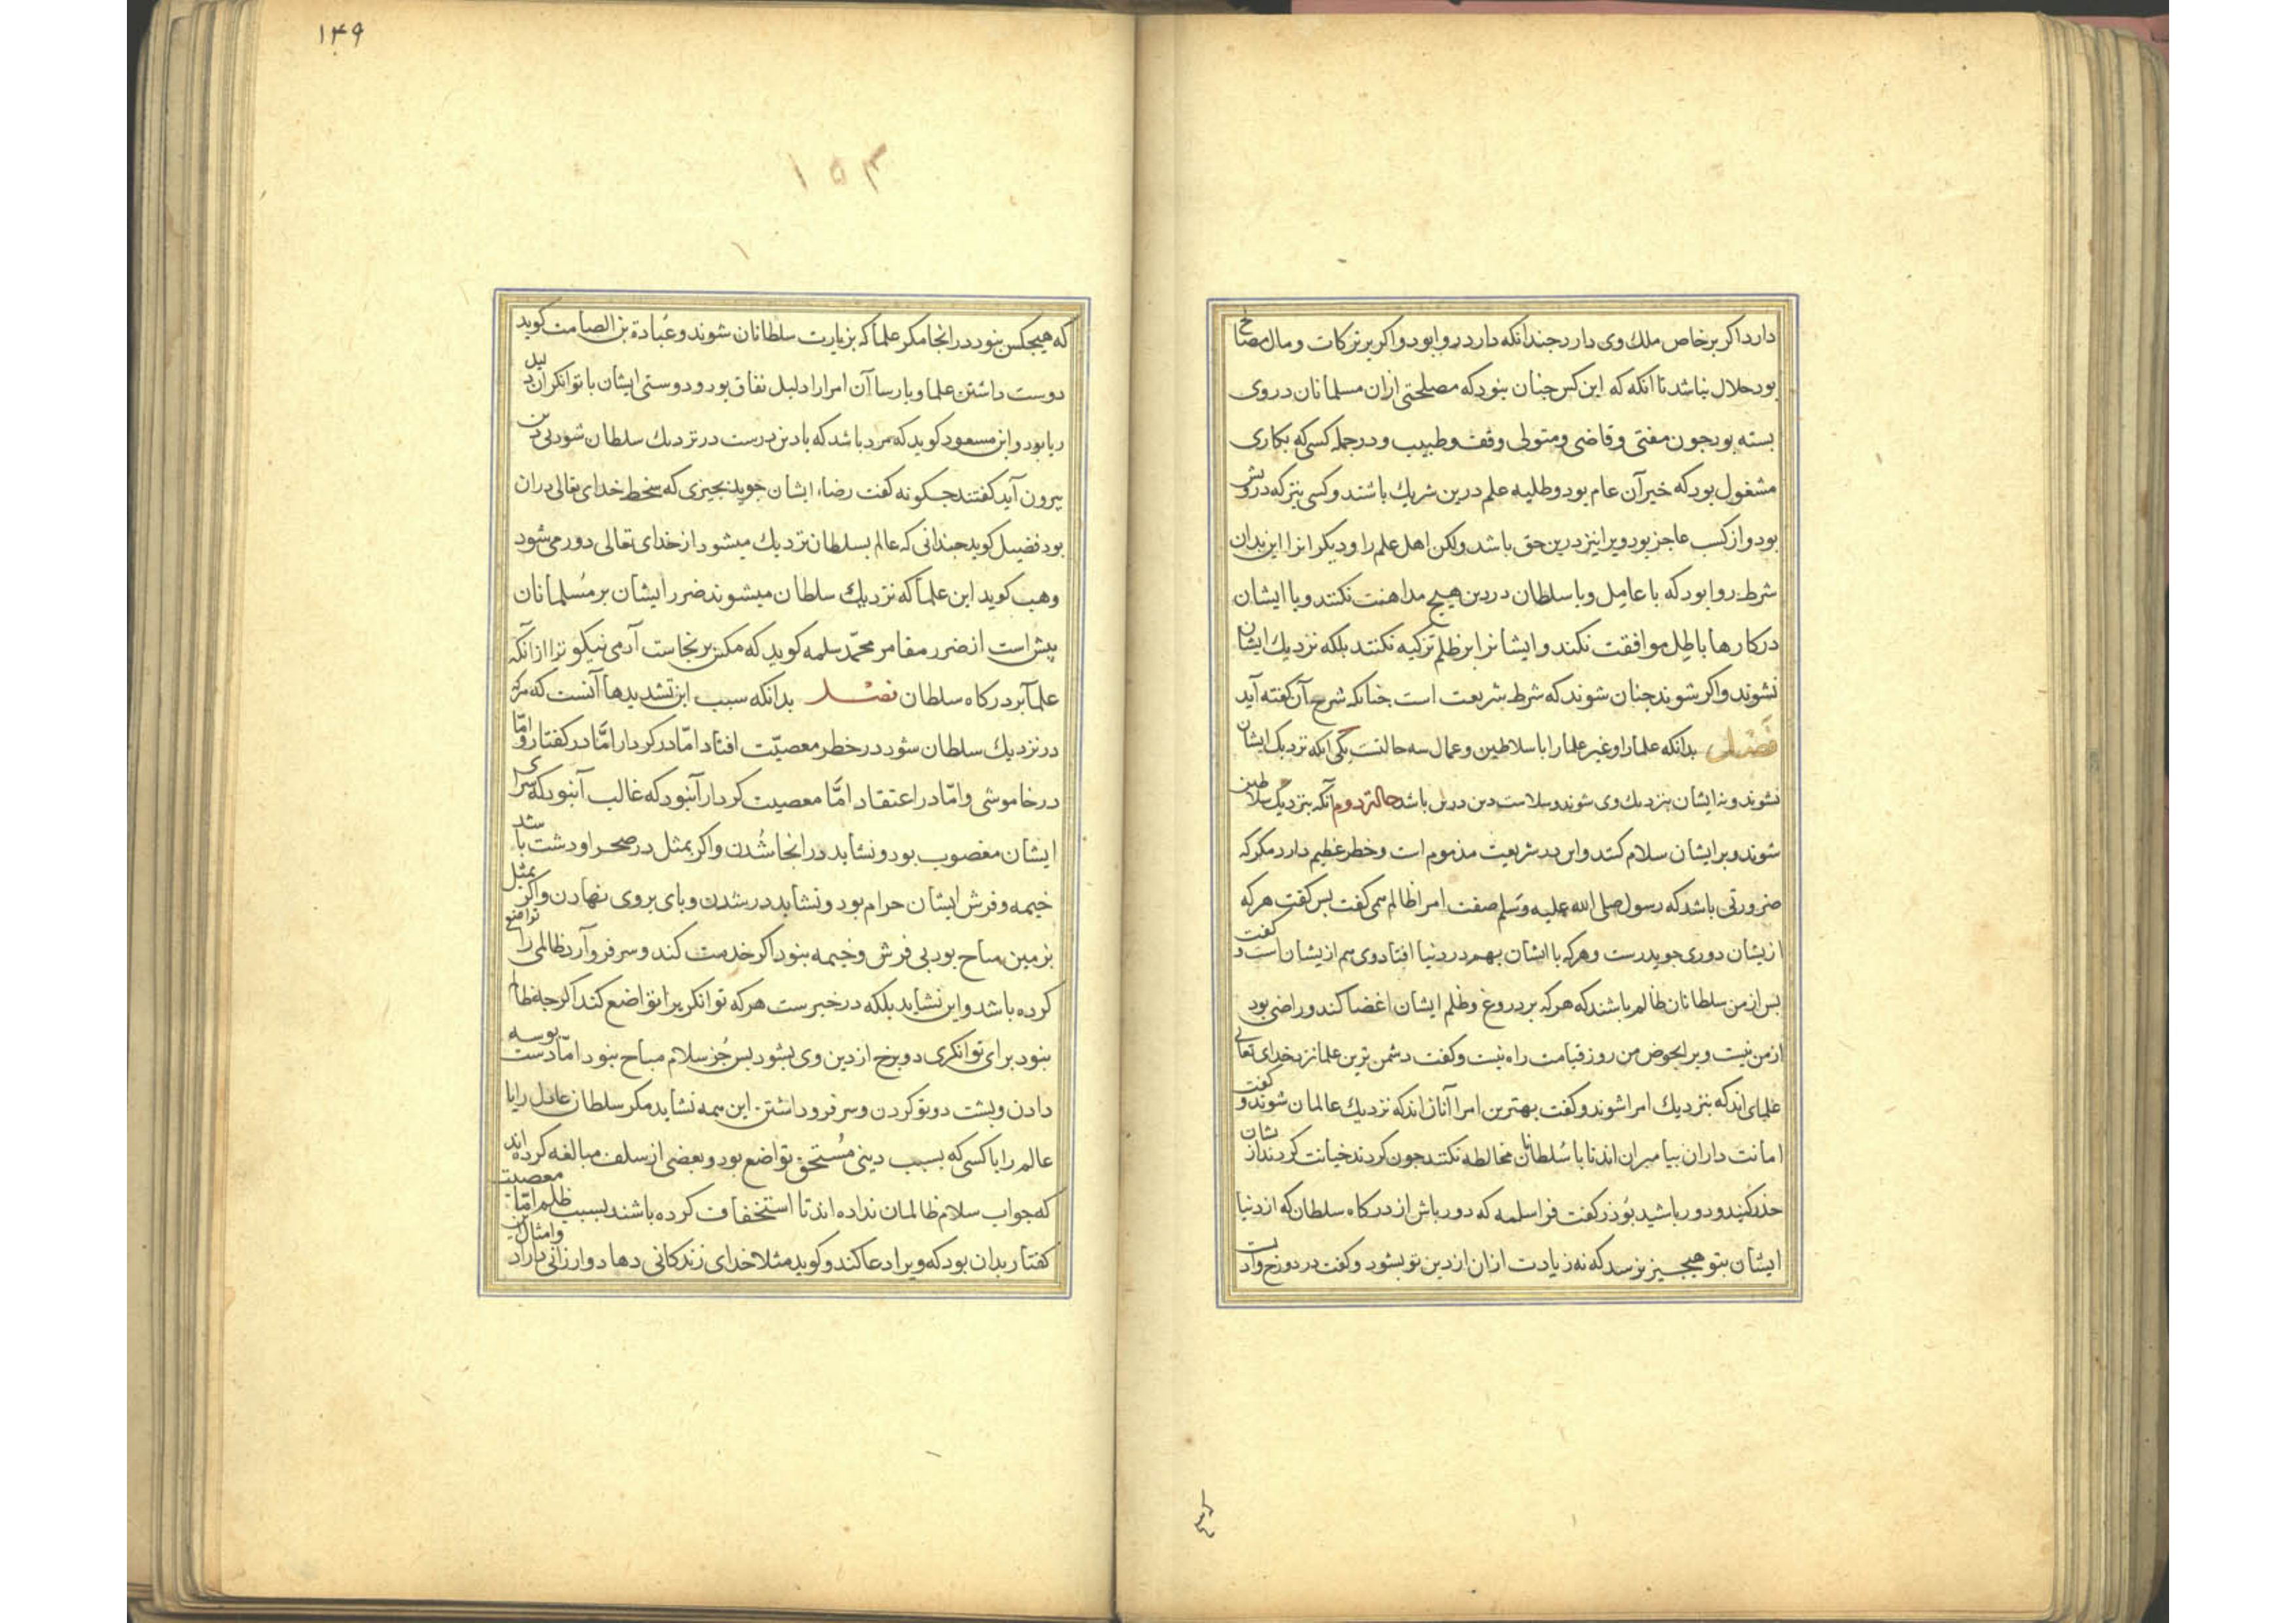 دارد اکر بر خاص ملك وی دارد جندانکه دارد روا بود و اکر بر ترکات و مال مصالح
بود حلال نباشد تا انکه که این کس جنان بنود که مصلحتی ازان مسلمانان در وی
بسته بود جون مفتی و قاضی و متولی وقف و طبیب و در جمله کسی که بکاری
مشغول بود که خیر آن عام بود و طلبه علم درین شریك باشند و کسی نیز که درویش
بود و از کسب عاجز بود ویرا نیز درین حق باشد ولکن اهل علم را و دیکرانرا این بدان
شرط روا بود که با عامل و با سلطان در دین هیچ مداهنت نکنند و با ایشان
در کارها باطل موافقت نکند و ایشانرا بر ظلم تزکیه نکنند بلکه نزدیك ایشان
نشوند و اکر شوند جنان شوند که شرط شریعت است جنانکه شرح آن کفته آید
فصل بدانکه علما را و غیر علما را با سلاطین و عمال سه حالتست یکی آنکه نزدیك ایشان
نشوند و نه ایشان بنزدیك وی شوند و سلامت دین درین باشد حالت دوم آنکه بنزدیك سلاطین
شوند و بر ایشان سلام کنند و این در شریعت مذموم است و خطر عظیم دارد مکر که
ضرورتی باشد که رسول صلی الله علیه وسلم صفت امرا ظالم همی کفت بس کفت هر که
ازیشان دوری جوید رست و هر که با ایشان بهم در دنیا افتاد وی هم ازیشان است و کفت
بس از من سلطانان ظالم باشند که هر که بر دروغ و ظلم ایشان اغضا کند و راضی بود
از من نیست و یرا بحوض من روز قیامت راه نیست و کفت دشمن ترین علما نزد خدای تعالی
علمای اند که بنزدیك امرا شوند و کفت بهترین امرا آنان اند که نزدیك عالمان شوند و کفت
امانت داران بیامبران اند تا با سلطانان مخالطه نکنند جون کردند خیانت کردند ازیشان
حذر کنید و دور باشید بوذر کفت فرا سلمه که دور باش از درکاه سلطان که از دنیا
ایشان بتو هیچ چیز نرسد که نه زیادت ازان از دین تو بشود و کفت در دوزخ وادیست
۱۴۹
۱۵۳
که هیجکس بنود در انجا مکر علما که بزیارت سلطانان شوند و عبادة بن الصامت کوید
دوست داشتن علما و بارسا آن امرا را دلیل نفاق بود و دوستی ایشان با توانکران دلیل
ریا بود و ابن مسعود کوید که مرد باشد که با دین درست در نزدیك سلطان شود بی دین
بیرون آید کفتند جکونه کفت رضاء ایشان جوید بجیزی که سخط خدای تعالی دران
بود فضیل کوید جندانی که عالم بسلطان نزدیك میشود از خدای تعالی دور می شود
وهب کوید این علما که نزدیك سلطان میشوند ضرر ایشان بر مسلمانان
بیش است از ضرر مقامر محمد سلمه کوید که مکس بر نجاست آدمی نیکوترا از انکه
علما بر درکاه سلطان فصل بدانکه سبب این تشدیدها آنست که هر که
در نزدیك سلطان شود در خطر معصیت افتاد اما در کردار اما در کفتار و اما
در خاموشی و اما در اعتقاد اما معصیت کردار آنبود که غالب آنبود که سرای
ایشان مغصوب بود و نشاید در انجا شدن و اکر بمثل در صحرا و دشت باشد
خیمه و فرش ایشان حرام بود و نشاید در شدن و بای بروی نهادن و اکر بمثل
بر زمین مباح بود بی فرش و خیمه بنود اکر خدمت کند و سر فرو آرد ظالمی را تواضع
کرده باشد و این نشاید بلکه در خبرست هر که توانکریرا تواضع کند اکر جه ظالم
بنود برای توانکری دو برخ از دین وی بشود بس جز سلام مباح بنود اما دست بوسه
دادن و بشت دو تو کردن و سر فرو داشتن این همه نشاید مکر سلطان عادل را یا
عالم را یا کسی که بسبب دینی مستحق تواضع بود و بعضی از سلف مبالغه کرده اند
که جواب سلام ظالمان نداده اند تا استخفاف کرده باشند بسبب ظلم اما معصیت
کفتار بدان بود که ویرا دعا کند و کوید مثلا خدای زندکانی دهاد و ارزانی داراد و امثال این